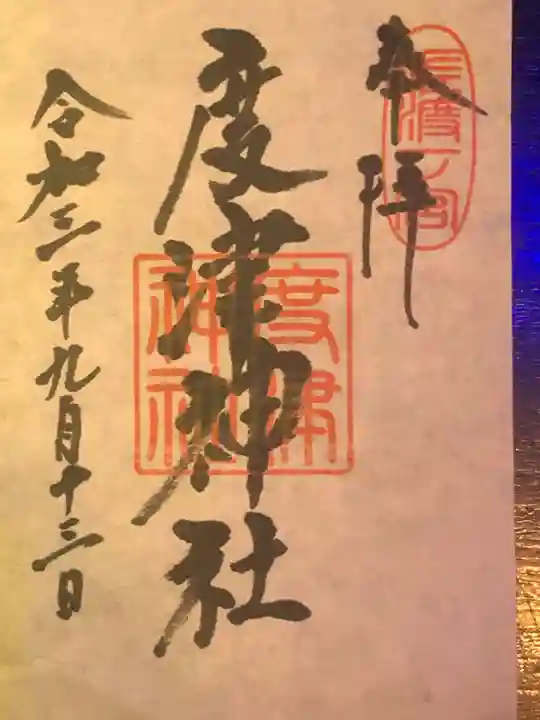 奉拝
度津神社
度津神社
令和三年九月十三日